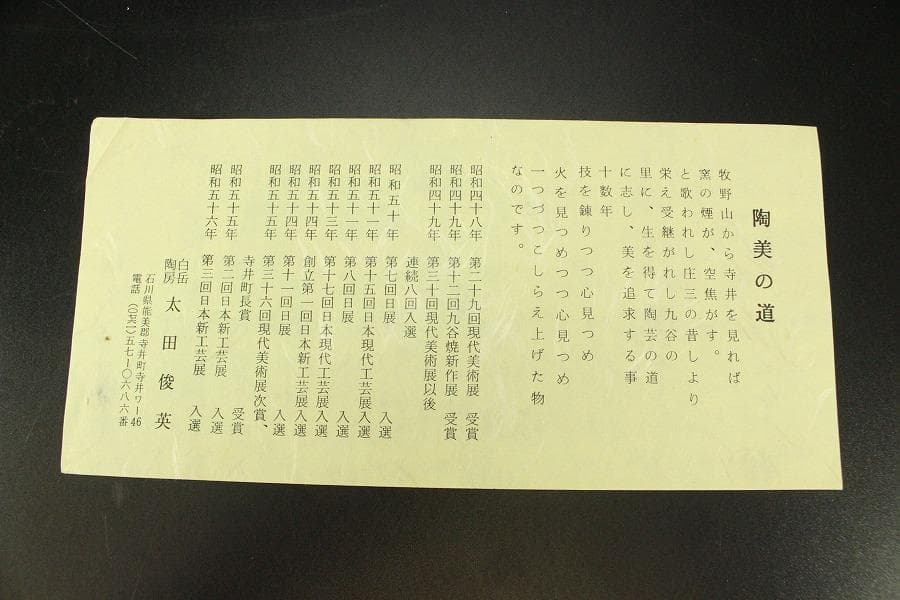 陶美の道
牧野山から寺井を見れば
窯の煙が、空焦がす。
と歌われし庄三の昔しより
栄え受継がれし九谷の
里に、生を得て陶芸の道
に志し、美を追求する事
十数年
技を錬りつつ心見つめ
火を見つめつつ心見つめ
一つづつこしらえ上げた物
なのです。
昭和四十八年 第二十九回現代美術展 受賞
昭和四十九年 第十二回九谷焼新作展 受賞
昭和四十九年 第三十回現代美術展以後
連続八回入選
昭和五十年 第七回日展 入選
昭和五十一年 第十五回日本現代工芸展 入選
昭和五十一年 第八回日展 入選
昭和五十三年 第十七回日本現代工芸展 入選
昭和五十四年 創立第一回日本新工芸展 入選
昭和五十四年 第十一回日展 入選
昭和五十五年 第三十六回現代美術展次賞、
寺井町長賞 受賞
昭和五十五年 第二回日本新工芸展 入選
昭和五十六年 第三回日本新工芸展 入選
白岳陶房 太田俊英
石川県能美郡寺井町寺井ワー46
電話(〇七六一)五七-〇六八六番